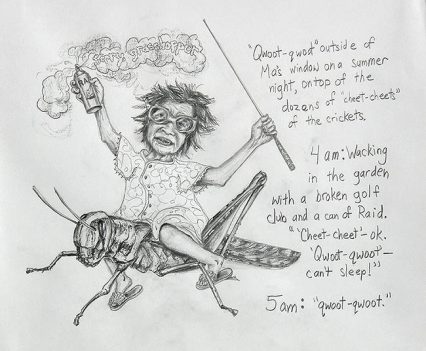 Sorry Grasshopper
"Qwoot-qwoot" outside of
Ma's window on a summer
night, on top of the
dozens of "cheet-cheets"
of the crickets.
4 am: Wacking
in the garden
with a broken golf
club and a can of Raid.
"'Cheet-cheet'-ok.
'Qwoot-qwoot'-
can't sleep!"
5 am: "qwoot-qwoot."